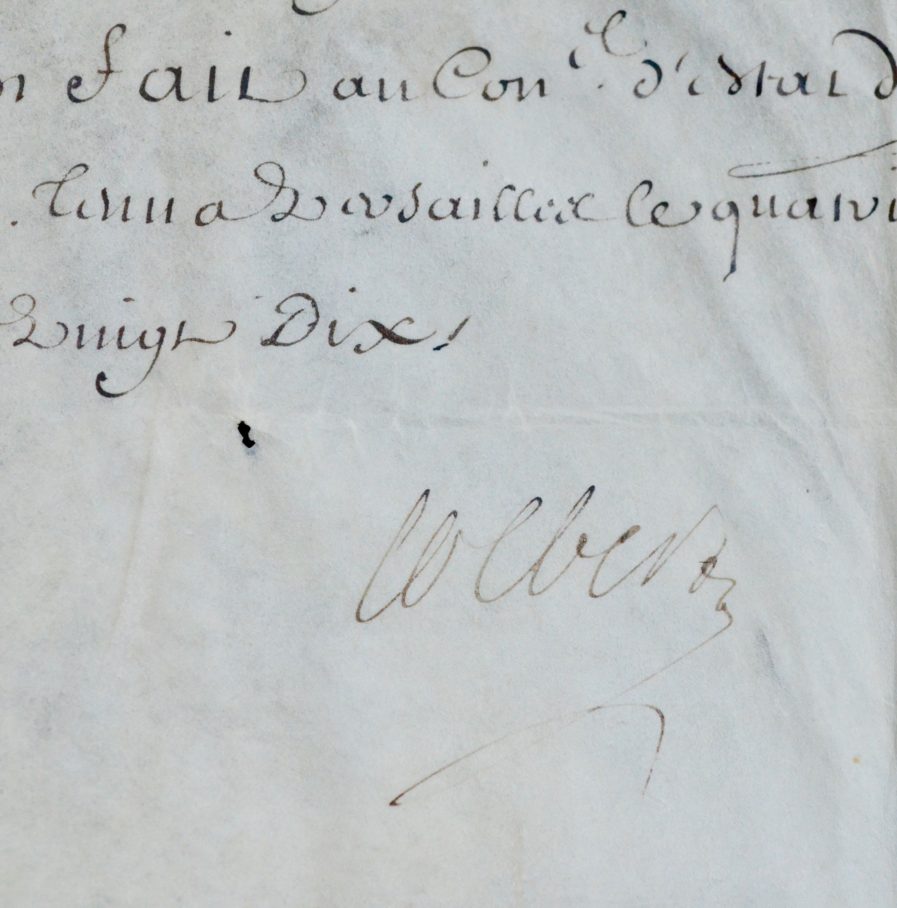 n fait au Con.el d'estat d
. tenu a Versailles le quatri
Vingt Dix,
Colbert